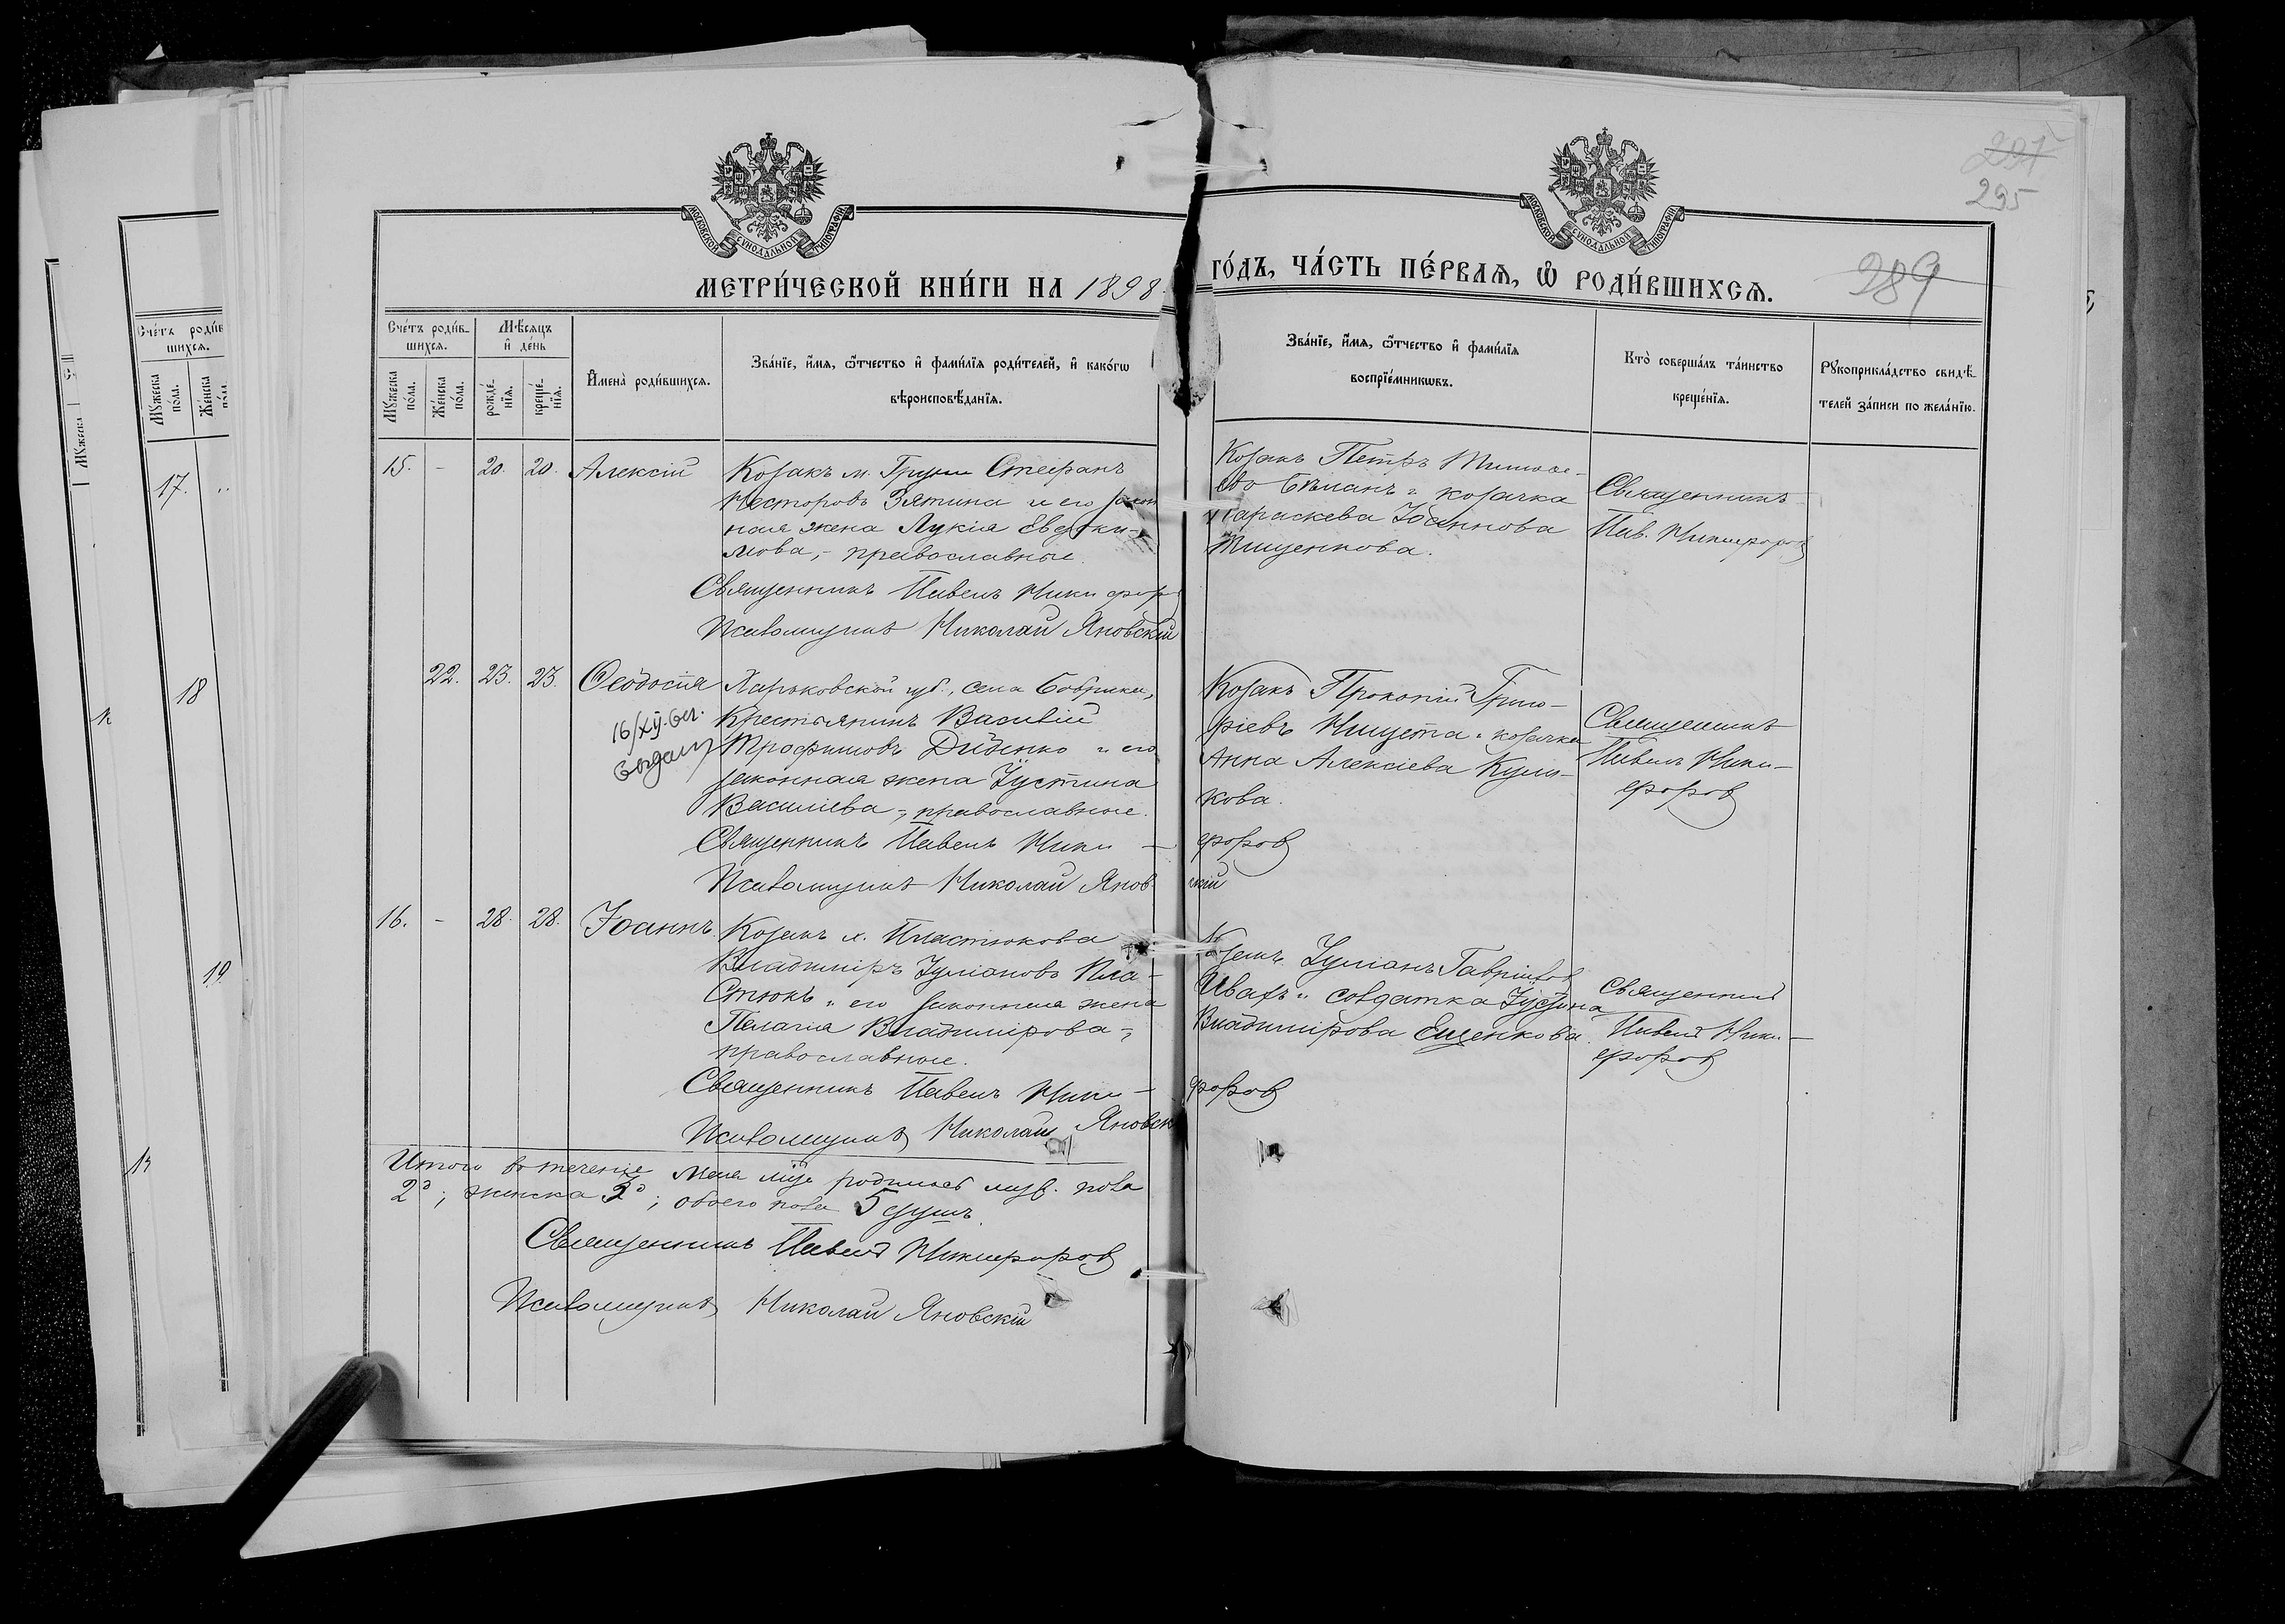 227
295
289
МОСКОВСКОЙ СУНОДАЛЬНОЙ ТИПОГРАФІИ
МОСКОВСКОЙ СУНОДАЛЬНОЙ ТИПОГРАФІИ
МЕТРИ́ЧЕСКОЙ КНИ́ГИ НА 1898
ГО́ДЪ, ЧА́СТЬ ПЕ́РВАѦ, Ѽ РОДИ́ВШИХСѦ.
Сче́тъ роди́в-
шихсѧ.
Мѣсѧцъ
и҆ де́нь
Мꙋжеска
по́ла.
Же́нска
по́ла.
рожде́-
нїѧ.
креще́-
нїѧ.
И҆мена̀ роди́вшихсѧ.
Зва́нїе, и҆́мѧ, ѻ҆́тчество и҆ фами́лїѧ роди́телей, и҆ како́гѡ
вѣроисповѣ́данїѧ.
Зва́нїе, и҆́мѧ, ѻ҆́тчество и҆ фами́лїѧ
воспрїе́мникѡвъ.
Кто̀ соверша́лъ та́инство
креще́нїѧ.
Рꙋкоприкла́дство свидѣ́-
телей за́писи по жела́нїю.
15. - 20. 20. Алексій
Козакъ м. Груни Стефанъ
Несторовъ Зятина и его закон
ная жена Лукія Евдоки-
мова, - православные.
Священникъ Павелъ Никифоров
Псаломщикъ Николай Яновскій
Козакъ Петръ
козачка
Параскева Іоаннова
Тищенкова.
Священникъ
Пав. Никифоров
22. 23. 23. Ѳеодосія
16/XII
выдан
Харьковской губ., села Бобрика,
Крестьянинъ Василій
Трофимовъ Диденко и его
законная жена Іустина
Василіева -, православные.
Священникъ Павелъ Ники -
форов
Псаломщикъ Николай Янов
скій
Козакъ Прокопій Григо-
ріевъ Нищета и козачка
Анна Алексіева Кули-
кова.
Священникъ
Павелъ Ники-
форов
16. - 28. 28. Іоаннъ.
Козакъ х. Пластюкова
Владиміръ Іуліановъ Пла-
стюкъ и его законная жена
Пелагія Владимірова -,
православные.
Священникъ Павелъ Ники -
форов
Псаломщикъ Николай Яновск
Козакъ Іуліанъ Гавріилов
Ивахъ и солдатка Іустина
Владимірова Ещенкова.
Священникъ
Павелъ Ники-
форов
Итого въ теченіе Мая м-ца родилось муж. пола
2 ; женска 3 ; обоего пола 5 душъ.
Священникъ Павелъ Никифоров
Псаломщикъ Николай Яновскій
Сче́тъ роди́в
шихсѧ.
Мꙋжеска
по́ла.
Же́нска
по́ла
Мꙋжеска
17.
18
19.